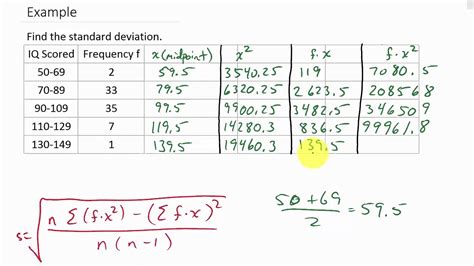 Example
Find the standard deviation.
IQ Scored Frequency f x (midpoint) x² f·x f·x²
50-69 2 59.5 3540.25 119 7080.5
70-89 33 79.5 6320.25 2623.5 208568
90-109 35 99.5 9900.25 3482.5 346509
110-129 7 119.5 14280.3 836.5 99961.8
130-149 1 139.5 19460.3 139.5
s= √ n Σ(f·x²) - (Σf·x)²
n (n-1)
50 + 69
2 = 59.5